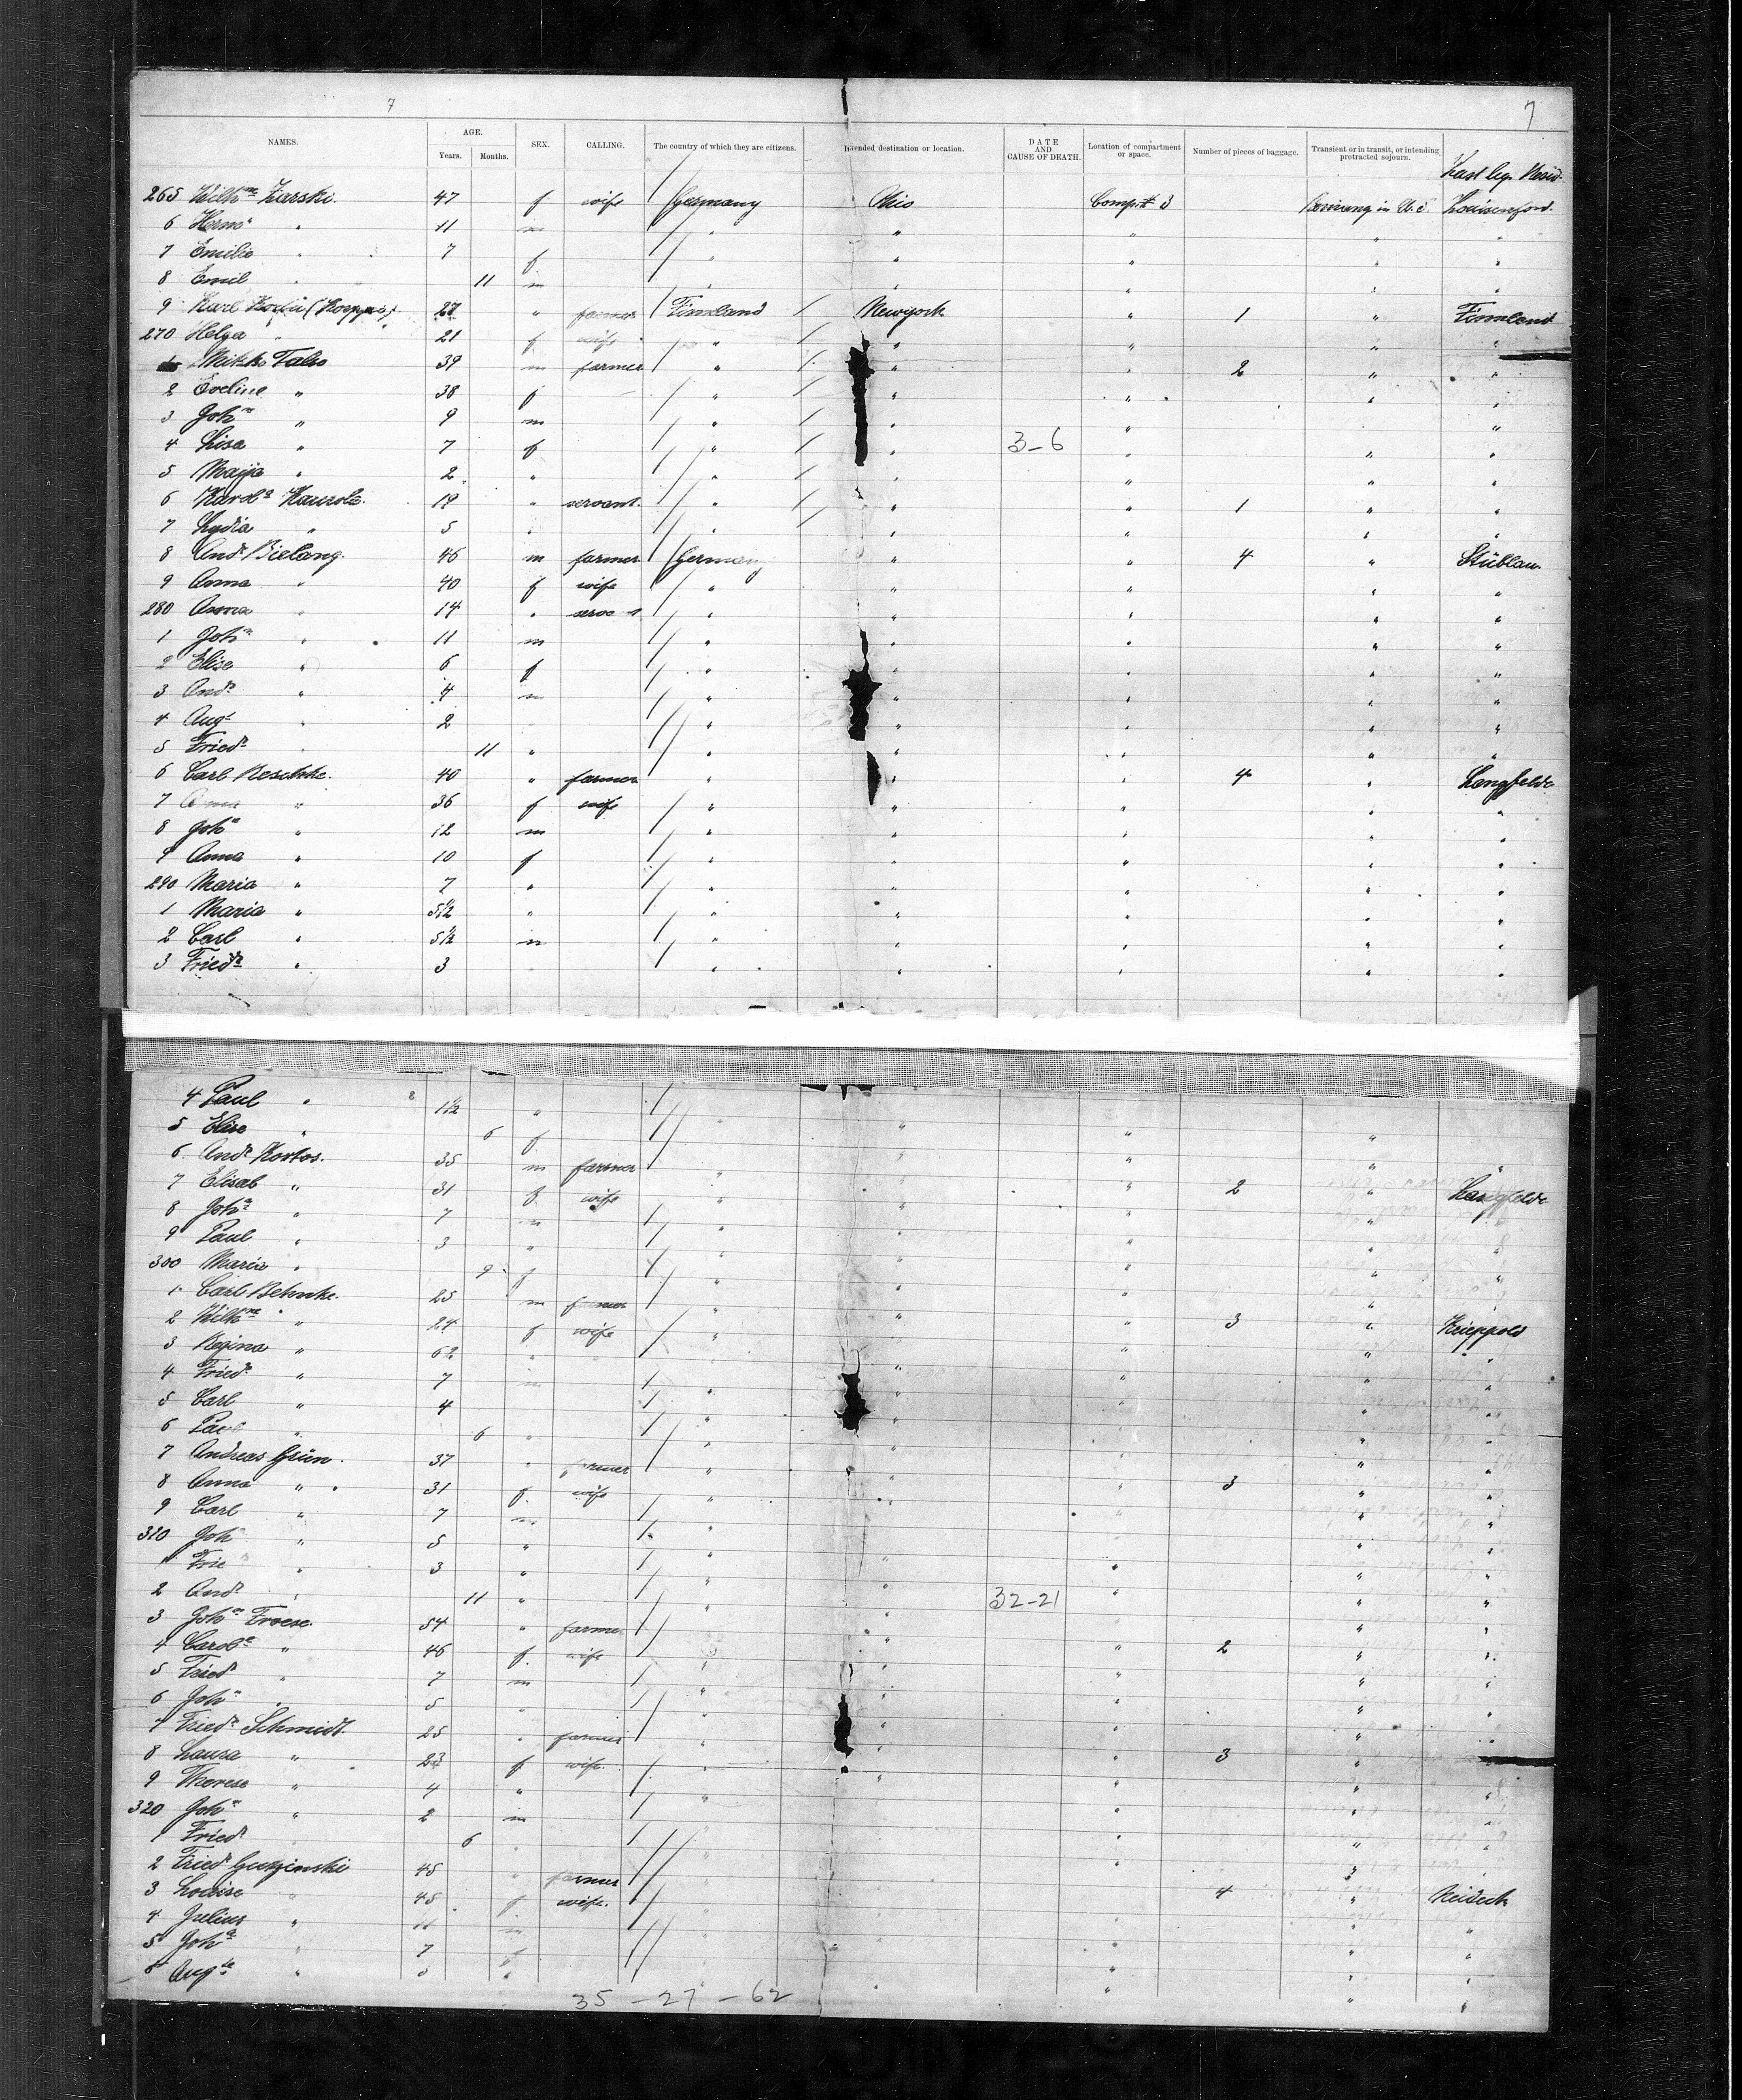 7 7
NAMES. AGE. Years. Months. SEX. CALLING. The country of which they are citizens. Intended destination or location. DATE AND CAUSE OF DEATH. Location of compartment or space. Number of pieces of baggage. Transient or in transit, or intending protracted sojourn. Last leg. Resid.
265 Wilhme Zarski. 47 f wife Germany Ohio Comp.# 3 in U.S.
6 " 11 m " " " " "
7 Emilie " 7 f " " " " "
8 Emil " 11 m " " " " "
9 Karl 27 " farmer Finnland Newyork " 1 " Finnland
270 Helga " 21 f wife " " " " "
1 Mikko Talso 39 m farmer " " " 2 " "
2 Eveline " 38 f " " " " "
3 John " 9 m " " " "
4 Lisa " 7 f " " 3-6 " " "
5 Maija " 2 " " " " " "
6 19 " servant. " " " 1 " "
7 Lydia " 5 " " " " " "
8 Andr. Bielang. 46 m farmer Germany " " 4 " Stüblau.
9 Anna " 40 f wife " " " " "
280 Anna " 14 " " " " " "
1 John " 11 m " " " " "
2 Elise " 6 f " " " " "
3 Andr " 4 m " " " " "
4 Augt " 2 " " " " "
5 Friedr " 11 " " " " " "
6 Carl Reschke. 40 " farmer " " " 4 " Langfelde
7 Anna " 36 f wife " " " " "
8 John " 12 m " " " " "
9 Anna " 10 f " " " " "
290 Maria " 7 " " " " " "
1 Maria " 5½ " " " " " "
2 Carl " 5½ m " " " " "
3 Friedr " 3 " " " " "
4 Paul " 1½ "
5 Elise " 6 f " " "
6. Andr Kortos. 35 m farmer " " " "
7 Elisab " 31 f wife " " " 2 " Langfelde
8 John " 7 m " " " " "
9 Paul " 3 " " " " " "
300 Maria " 9 f " " " "
1 Carl Behnke. 25 m farmer " " " 3 "
2 Wilhme " 24 f wife " " " "
3 Regina " 62 " " " " "
4 Friedr " 7 m " " " " "
5 Carl " 4 " " " " "
6 Paul " 6 " " " " "
7 Andreas Grün. 37 " farmer " " " 3 " "
8 Anna " 31 f. wife " " " " "
9 Carl " 7 m " " " "
310 Joh " 5 " " " " " "
1 " 3 " " " " " "
2 Andr " 11 " " " 32-21 " " "
3 John Froese. 54 " farmer " " 2 " "
4 Carole " 46 f. wife " " " " "
5 Friedr " 7 m " " " " "
6 John " 5 " " " " "
7 Friedr Schmidt. 25 " farmer " " " 3 "
8 Laura " 23 f wife. " " " " "
9 Therese " 4 " " " " "
320 John " 2 m " " "
1 Friedr 6 " " " "
2 Friedr 45 " farmer 4 "
3 Louise " 45 f wife. " "
4 Julius " 11 m " " "
5 Joha " 7 f " " "
6 Augte " " " " " "
35 - 27 - 62